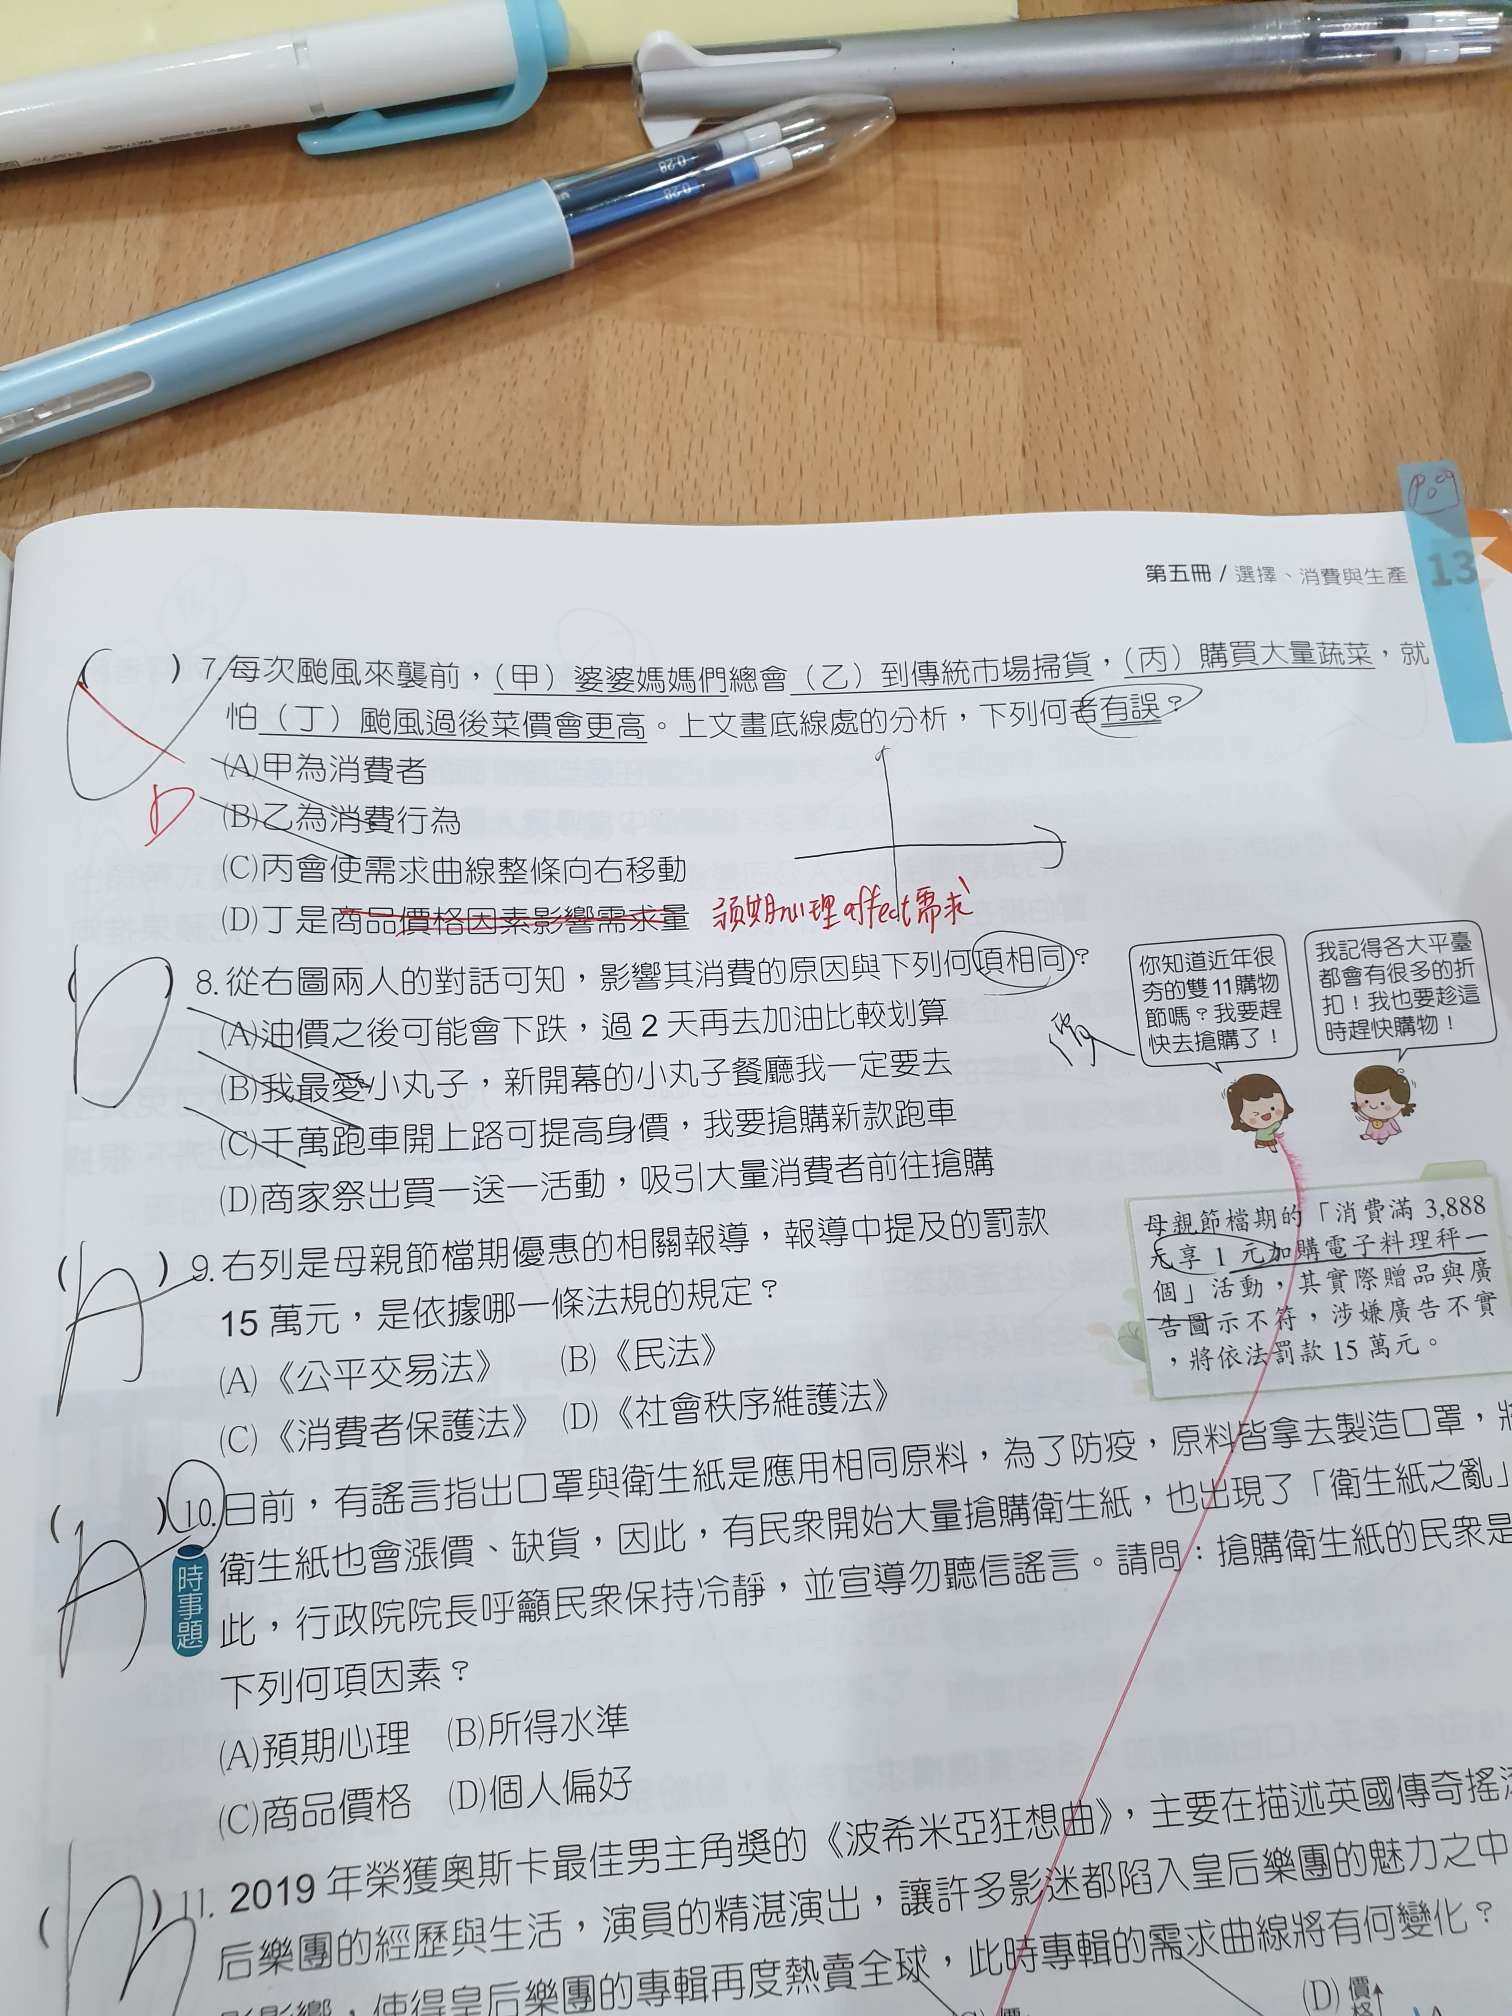 0.28
0.28
第五冊 / 選擇、消費與生產
13
( ) 7. 每次颱風來襲前，(甲) 婆婆媽媽們總會(乙) 到傳統市場掃貨，(丙) 購買大量蔬菜，就
怕(丁) 颱風過後菜價會更高。上文畫底線處的分析，下列何者有誤？
(A)甲為消費者
D
(B)乙為消費行為
(C)丙會使需求曲線整條向右移動
(D)丁是商品價格因素影響需求量 預期心理affect需求
8. 從右圖兩人的對話可知，影響其消費的原因與下列何項相同？
D
(A)油價之後可能會下跌，過 2 天再去加油比較划算
(B)我最愛小丸子，新開幕的小丸子餐廳我一定要去
(C)千萬跑車開上路可提高身價，我要搶購新款跑車
(D)商家祭出買一送一活動，吸引大量消費者前往搶購
你知道近年很
夯的雙 11 購物
節嗎？我要趕
快去搶購了！
我記得各大平臺
都會有很多的折
扣！我也要趁這
時趕快購物！
(A) 9. 右列是母親節檔期優惠的相關報導，報導中提及的罰款
15 萬元，是依據哪一條法規的規定？
(A)《公平交易法》 (B)《民法》
(C)《消費者保護法》 (D)《社會秩序維護法》
母親節檔期的「消費滿 3,888
元享 1 元加購電子料理秤一
個」活動，其實際贈品與廣
告圖示不符，涉嫌廣告不實
，將依法罰款 15 萬元。
(A) 10. 日前，有謠言指出口罩與衛生紙是應用相同原料，為了防疫，原料皆拿去製造口罩，
時事題
衛生紙也會漲價、缺貨，因此，有民眾開始大量搶購衛生紙，也出現了「衛生紙之亂」
此，行政院院長呼籲民眾保持冷靜，並宣導勿聽信謠言。請問：搶購衛生紙的民眾是
下列何項因素？
(A)預期心理 (B)所得水準
(C)商品價格 (D)個人偏好
( ) 11. 2019 年榮獲奧斯卡最佳男主角獎的《波希米亞狂想曲》，主要在描述英國傳奇搖滾
后樂團的經歷與生活，演員的精湛演出，讓許多影迷都陷入皇后樂團的魅力之中
影影響，使得皇后樂團的專輯再度熱賣全球，此時專輯的需求曲線將有何變化？
(D) 價格